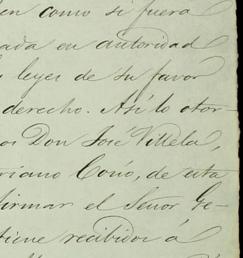 en como si fuera
ada en autoridad
leyes de su favor
derecho. Así lo otor-
os Don José Villela,
riano Coño, de esta
firmar el Señor Ge-
tiene recibidos á